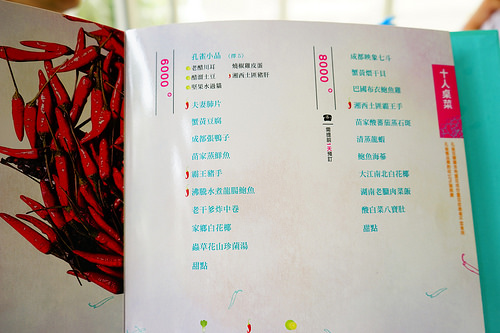 6000°
孔雀小品 (擇五)
老醋川耳 燒椒雞皮蛋
醋溜土豆 湘西土匪豬肝
堅果水過貓
夫妻肺片
蟹黃豆腐
成都張鴨子
苗家蒸鮮魚
霸王豬手
沸騰水煮龍腸鮑魚
老干爹炸中卷
家鄉白花椰
蟲草花山珍菌湯
甜點
8000°
需提前1天預訂
成都映象七斗
蟹黃燴干貝
巴國布衣鮑魚雞
湘西土匪霸王手
苗家酸蕃茄蒸石斑
清蒸龍蝦
鮑魚海蔘
大江南北白花椰
湖南老臘肉菜飯
酸白菜八寶肚
甜點
十人桌菜